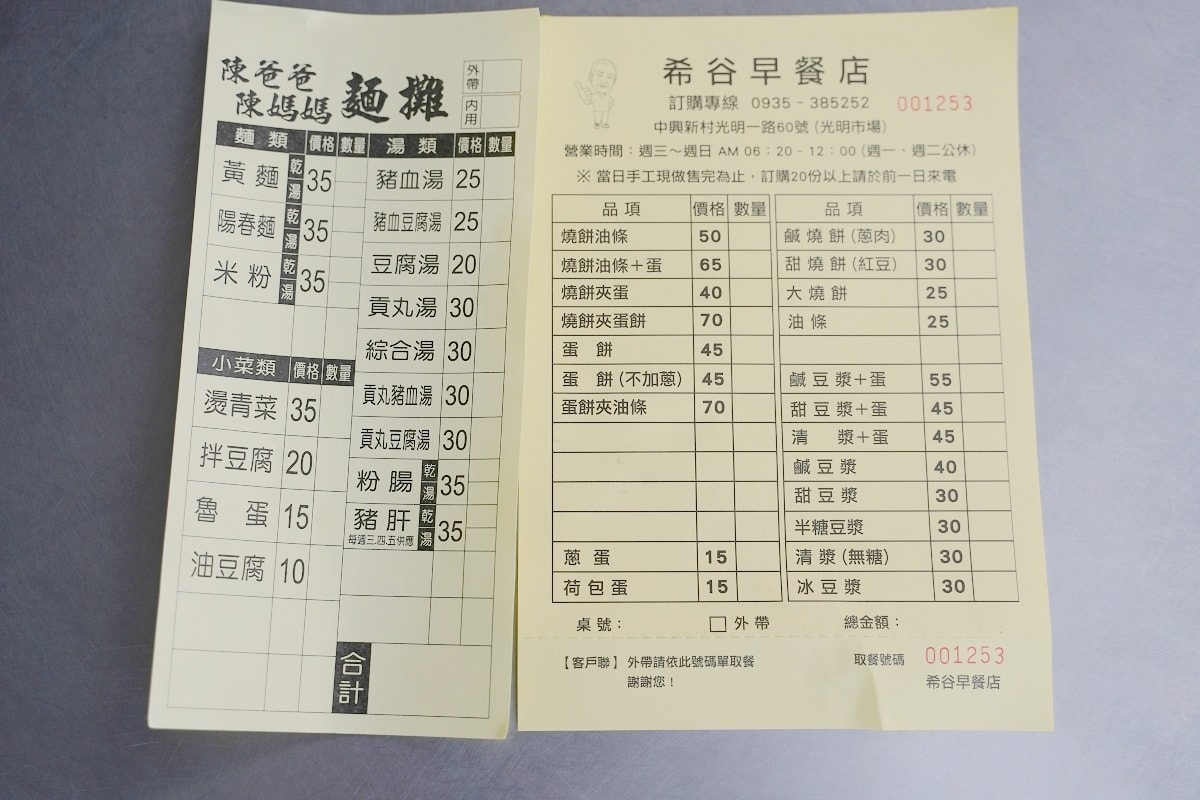 陳爸爸
陳媽媽 麵攤
外帶
內用
麵類 價格 數量
黃麵 乾 湯 35
陽春麵 乾 湯 35
米粉 乾 湯 35
小菜類 價格 數量
燙青菜 35
拌豆腐 20
魯蛋 15
油豆腐 10
湯類 價格 數量
豬血湯 25
豬血豆腐湯 25
豆腐湯 20
貢丸湯 30
綜合湯 30
貢丸豬血湯 30
貢丸豆腐湯 30
粉腸 乾 湯 35
豬肝 乾 湯 35
每週三.四.五供應
合計
希谷早餐店
訂購專線 0935-385252 001253
中興新村光明一路60號(光明市場)
營業時間:週三~週日 AM 06:20-12:00(週一、週二公休)
※ 當日手工現做售完為止,訂購20份以上請於前一日來電
品項 價格 數量
燒餅油條 50
燒餅油條+蛋 65
燒餅夾蛋 40
燒餅夾蛋餅 70
蛋 餅 45
蛋 餅(不加蔥) 45
蛋餅夾油條 70
蔥蛋 15
荷包蛋 15
品項 價格 數量
鹹燒餅(蔥肉) 30
甜燒餅(紅豆) 30
大燒餅 25
油條 25
鹹豆漿+蛋 55
甜豆漿+蛋 45
清 漿+蛋 45
鹹豆漿 40
甜豆漿 30
半糖豆漿 30
清漿(無糖) 30
冰豆漿 30
桌號: □外帶 總金額:
【客戶聯】外帶請依此號碼單取餐
謝謝您!
取餐號碼 001253
希谷早餐店